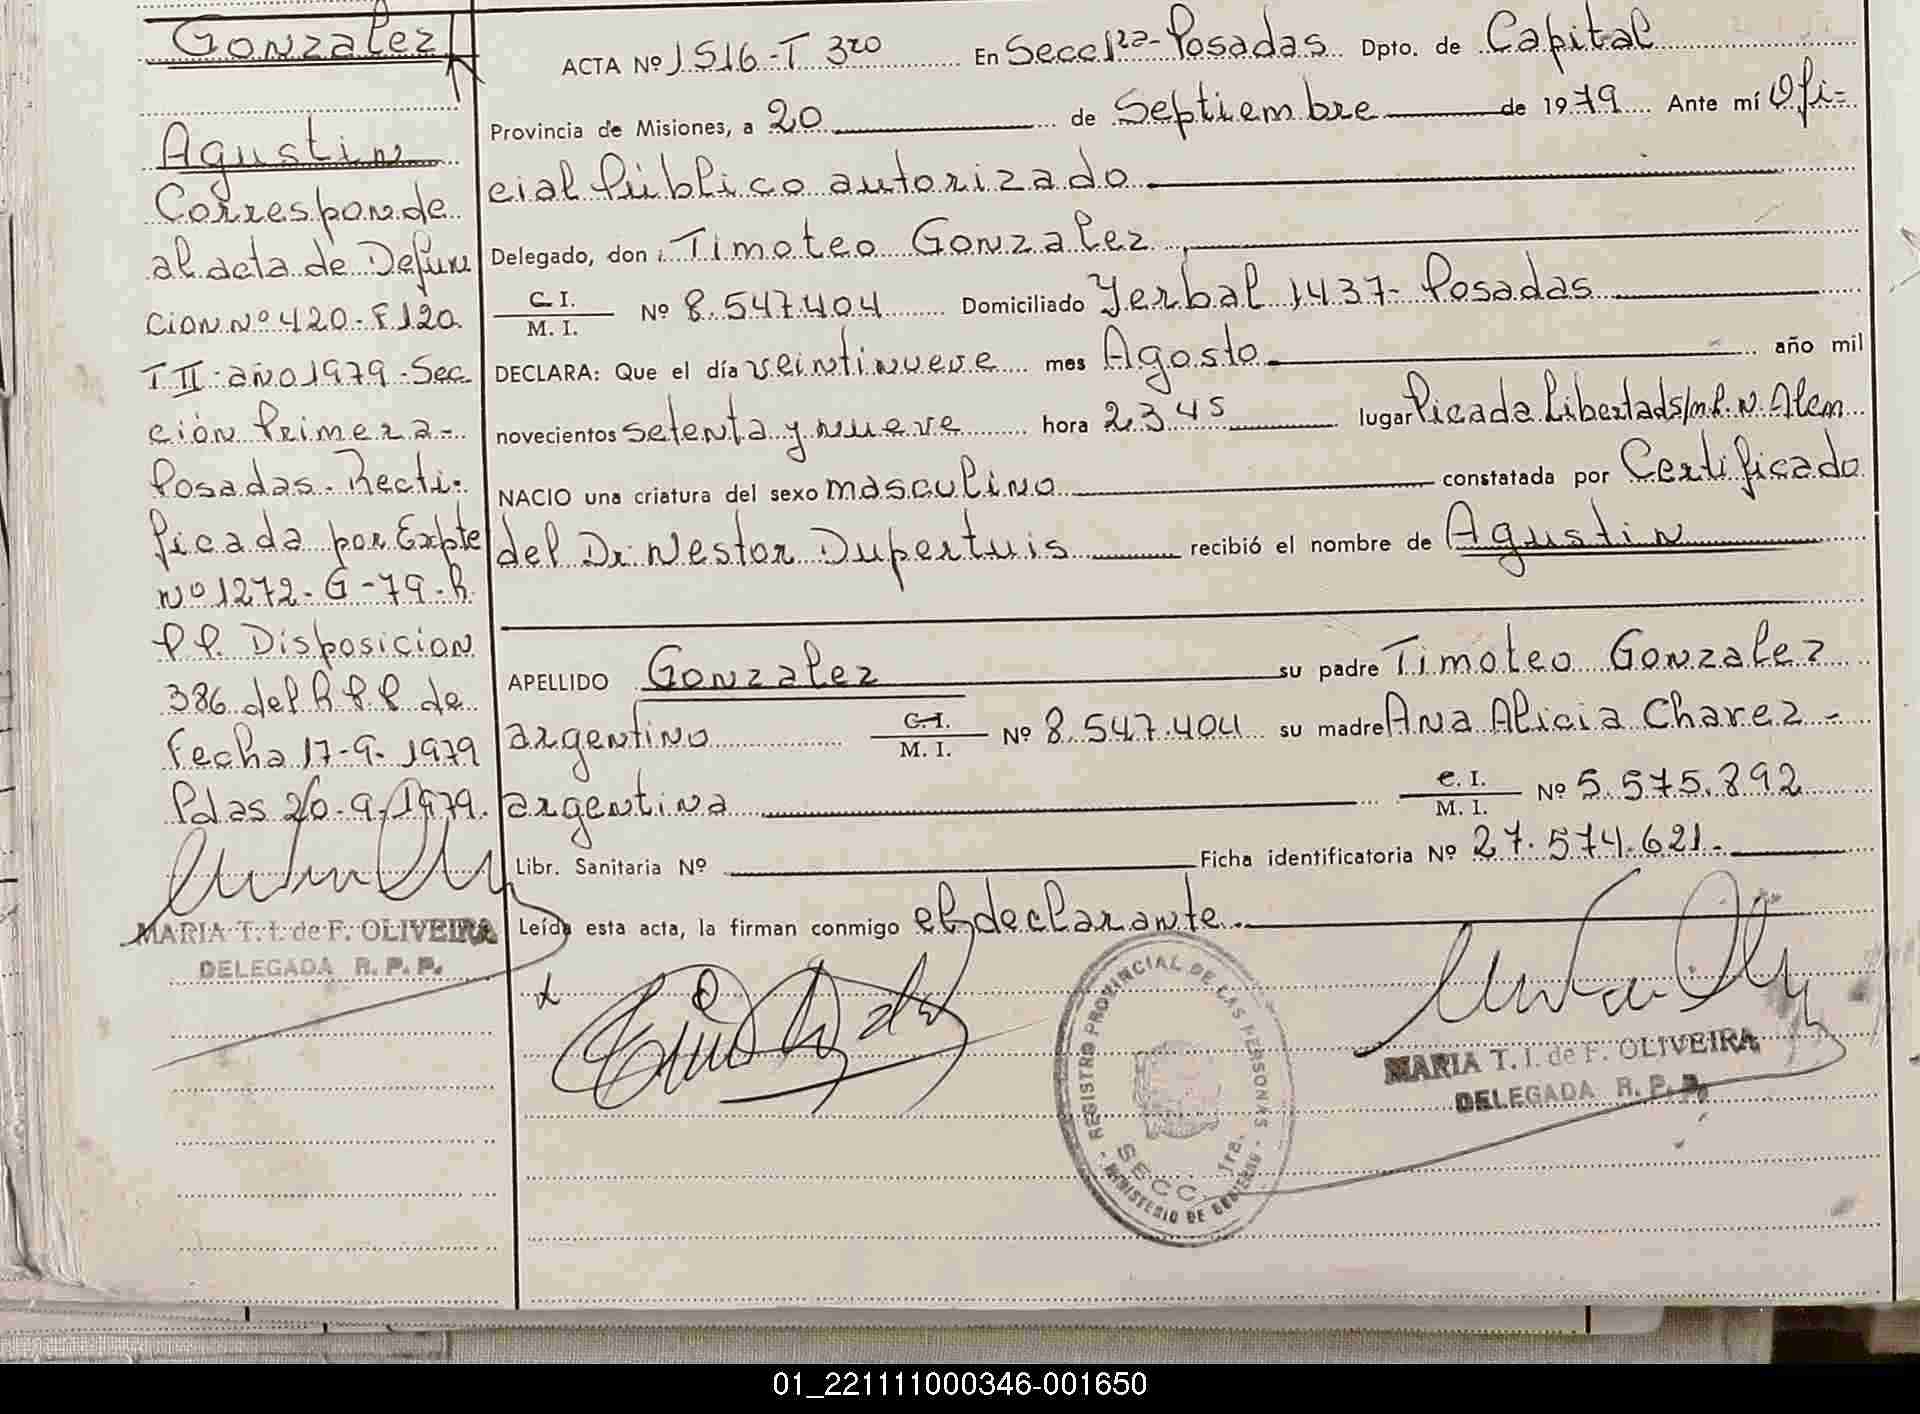 Gonzalez
Agustin
Corresponde
al acta de Defun
cion nº 420-F 120
T II año 1979-Sec
ción Primera-
Posadas. Recti-
ficada por Expte
nº 1272-G-79-R.
P.P. Disposicion
386 del R.P.P. de
Fecha 17-9-1979
Pdas 20-9-1979.
MARIA T. I. de F. OLIVEIRA
DELEGADA R. P. P.
ACTA Nº 1516-T 3ro En Secc 1ra-Posadas Dpto. de Capital
Provincia de Misiones, a 20 de Septiembre de 1979 Ante mí Ofi-
cial Público autorizado
Delegado, don: Timoteo Gonzalez
C I. / M. I. Nº 8.547.404 Domiciliado Yerbal 1437-Posadas
DECLARA: Que el día veintinueve mes Agosto año mil
novecientos setenta y nueve hora 23 45 lugar Picada Libertad N. Alem
NACIO una criatura del sexo masculino constatada por Certificado
del Dr. Nestor Dupertuis recibió el nombre de Agustin
APELLIDO Gonzalez su padre Timoteo Gonzalez
argentino C.I. / M. I. Nº 8.547.404 su madre Ana Alicia Chavez-
argentina C. I. / M. I. Nº 5.575.892
Libr. Sanitaria Nº Ficha identificatoria Nº 27.574.621.-
Leída esta acta, la firman conmigo el declarante.
REGISTRO PROVINCIAL DE LAS PERSONAS
SECC. 1ra.
MINISTERIO DE GOBIERNO
MARIA T. I. de F. OLIVEIRA
DELEGADA R. P. P.
01_221111000346-001650